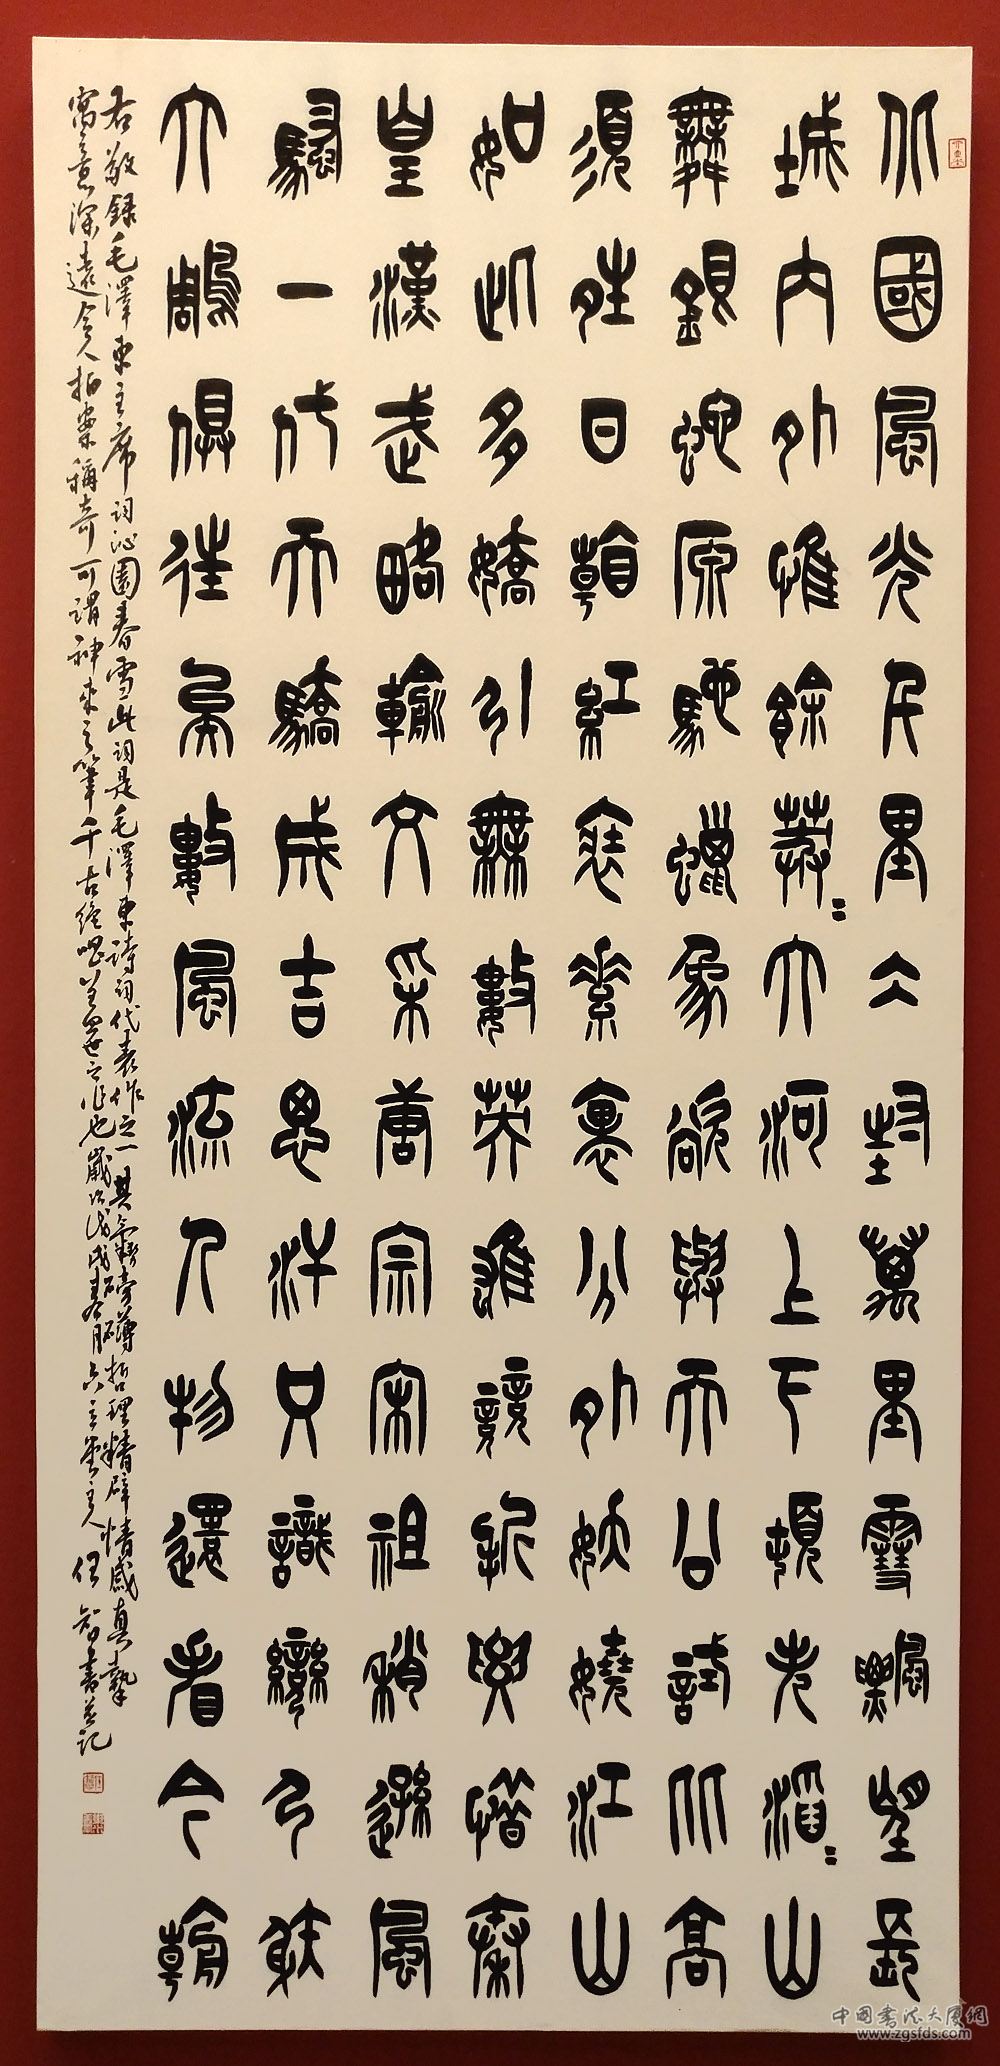 北國風光千里冰封萬里雪飄望長
城內外惟餘莽〻大河上下頓失滔〻山
舞銀蛇原馳蠟象欲與天公試比高
須晴日看紅裝素裹分外妖嬈江山
如此多嬌引無數英雄競折腰惜秦
皇漢武略輸文采唐宗宋祖稍遜風
騷一代天驕成吉思汗只識彎弓射
大鵰俱往矣數風流人物還看今朝
右敬錄毛澤東主席詞沁園春雪此詞是毛澤東詩詞代表作之一其氣勢磅礴哲理精辟情感真摯
寓意深遠令人拍案稱奇可謂神來之筆千古絕唱蓋世之作也歲次戊戌春月六主堂主人任智書並記
中國書法大廈網
www.zgsfds.com